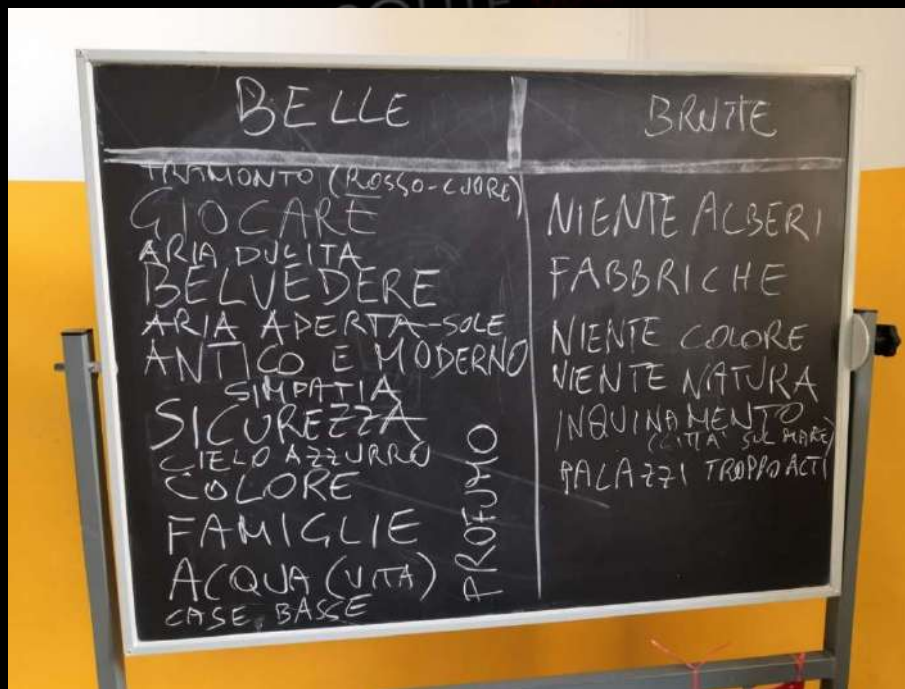 BELLE
TRAMONTO (ROSSO-CUORE)
GIOCARE
ARIA PULITA
BELVEDERE
ARIA APERTA-SOLE
ANTICO E MODERNO
SIMPATIA
SICUREZZA
CIELO AZZURRO
COLORE
FAMIGLIE
ACQUA (VITA)
CASE BASSE
PROFUMO
BRUTTE
NIENTE ALBERI
FABBRICHE
NIENTE COLORE
NIENTE NATURA
INQUINAMENTO
(CITTA' SUL MARE)
PALAZZI TROPPO ALTI